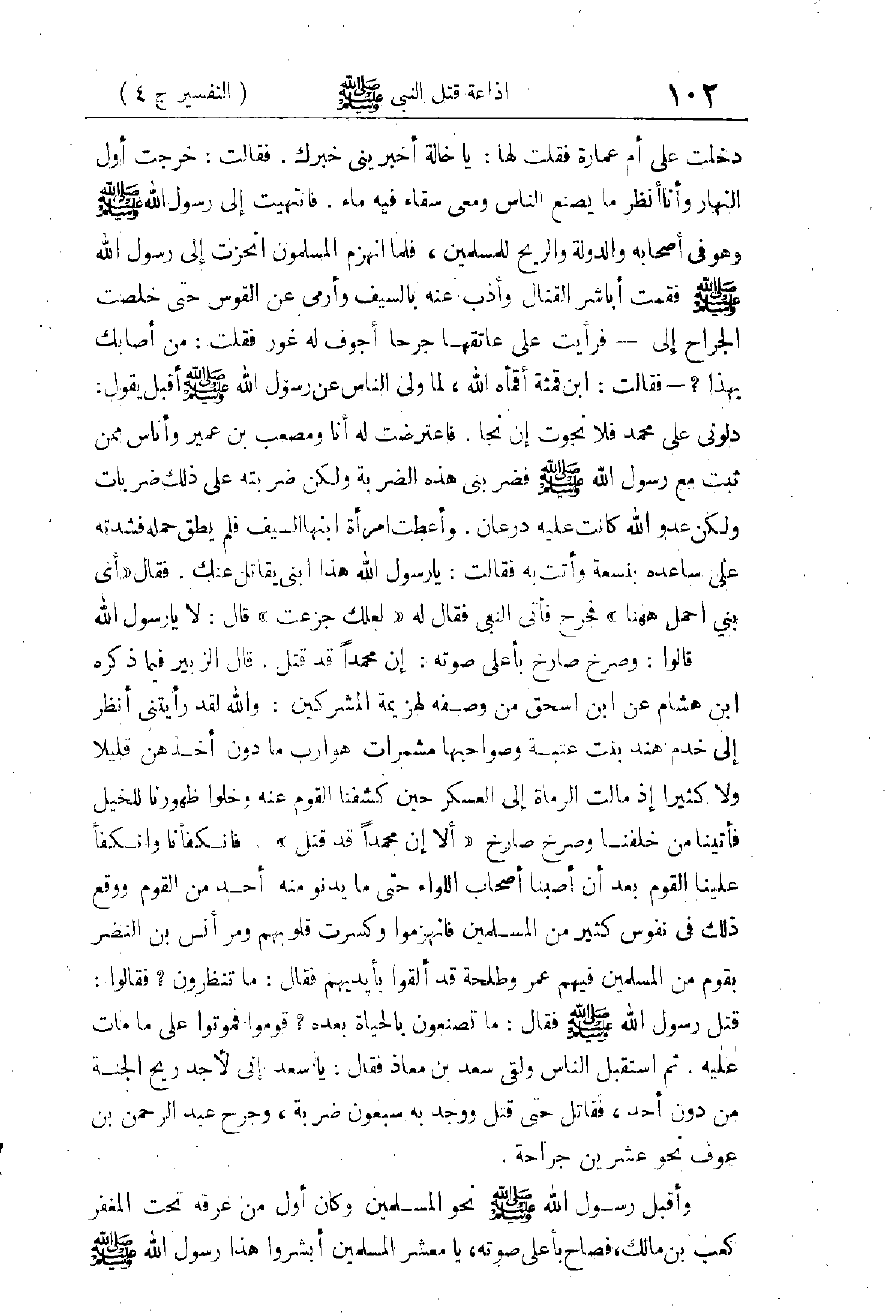 ١٠٢ اذاعة قتل النبى ﷺ ( التفسير ج ٤ )
دخلت على أم عمارة فقلت لها : يا خالة أخبرينى خبرك . فقالت : خرجت أول
النهار وأنا أنظر ما يصنع الناس ومعى سقاء فيه ماء . فانتهيت إلى رسول الله ﷺ
وهو فى أصحابه والدولة والريح للمسلمين ، فلما انهزم المسلمون انحزت إلى رسول الله
ﷺ فقمت أباشر القتال وأذب عنه بالسيف وأرمى عن القوس حتى خلصت
الجراح إلى — فرأيت على عاتقهـا جرحا أجوف له غور فقلت : من أصابك
بهذا ؟ — فقالت : ابن قمئة أقمأه الله ، لما ولى الناس عن رسول الله ﷺ أقبل يقول :
دلونى على محمد فلا نجوت إن نجا . فاعترضت له أنا ومصعب بن عمير وأناس ممن
ثبت مع رسول الله ﷺ فضربنى هذه الضربة ولكن ضربته على ذلك ضربات
ولكن عدو الله كانت عليه درعان . وأعطت امرأة ابنها السيف فلم يطق حمله فشدته
على ساعده بنسعة وأتت به فقالت : يارسول الله هذا ابنى يقاتل عنك . فقال « أى
بني احمل ههنا » فجرح فأتى النبى فقال له « لعلك جزعت » قال : لا يارسول الله
قالوا : وصرخ صارخ بأعلى صوته : إن محمداً قد قتل . قال الزبير فيما ذكره
ابن هشام عن ابن اسحق من وصـفه لهزيمة المشركين : والله لقد رأيتنى أنظر
إلى خدم هند بنت عتبـة وصواحبها مشمرات هوارب ما دون أخـذهن قليلا
ولا كثيرا إذ مالت الرماة إلى العسكر حين كشفنا القوم عنه وخلوا ظهورنا للخيل
فأتينا من خلفنـا وصرخ صارخ « ألا إن محمداً قد قتل » . فانـكفأنا وانـكفأ
علينا القوم بعد أن أصبنا أصحاب اللواء حتى ما يدنو منه أحـد من القوم ووقع
ذلك فى نفوس كثير من المسـلمين فانهزموا وكسرت قلوبهم ومر أنس بن النضر
بقوم من المسلمين فيهم عمر وطلحة قد ألقوا بأيديهم فقال : ما تنظرون ؟ فقالوا :
قتل رسول الله ﷺ فقال : ما تصنعون بالحياة بعده ؟ قوموا فموتوا على ما مات
عليه . ثم استقبل الناس ولقى سعد بن معاذ فقال : يا سعد إنى لأجد ريح الجنـة
من دون أحد ، فقاتل حتى قتل ووجد به سبعون ضربة ، وجرح عبد الرحمن بن
عوف نحو عشرين جراحة .
وأقبل رسـول الله ﷺ نحو المسـلمين وكان أول من عرفه تحت المغفر
كعب بن مالك، فصاح بأعلى صوته، يا معشر المسلمين أبشروا هذا رسول الله ﷺ